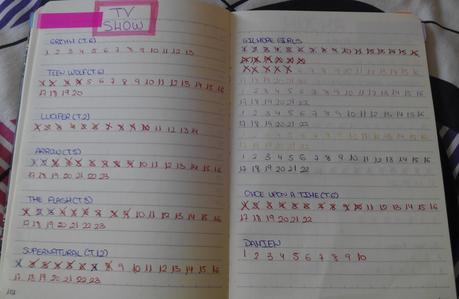 TV
SHOW
GRIMM (T.6)
1 2 3 4 5 6 7 8 9 10 11 12 13
TEEN WOLF (T.6)
5 6 7 8 9 10 11 12 13 14 15 16
17 18 19 20
LUCIFER (T.2)
11 12 13 14
ARROW (T.5)
10 11 12 13 14 15 16
17 18 19 20 21 22 23
THE FLASH (T.3)
10 11 12 13 14 15 16
17 18 19 20 21 22 23
SUPERNATURAL (T.12)
9 10 11 12 13 14 15 16
17 18 19 20 21 22 23
GILMORE GIRLS
17 18 19 20 21 22
1 2 3 4 5 6 7 8 9 10 11 12 13 14 15 16
17 18 19 20 21 22
1 2 3 4 5 6 7 8 9 10 11 12 13 14 15 16
17 18 19 20 21 22
1 2 3 4 5 6 7 8 9 10 11 12 13 14 15 16
17 18 19 20 21 22
ONCE UPON A TIME (T.6)
11 12 13 14 15 16
17 18 19 20 21 22
DAMIEN
1 2 3 4 5 6 7 8 9 10